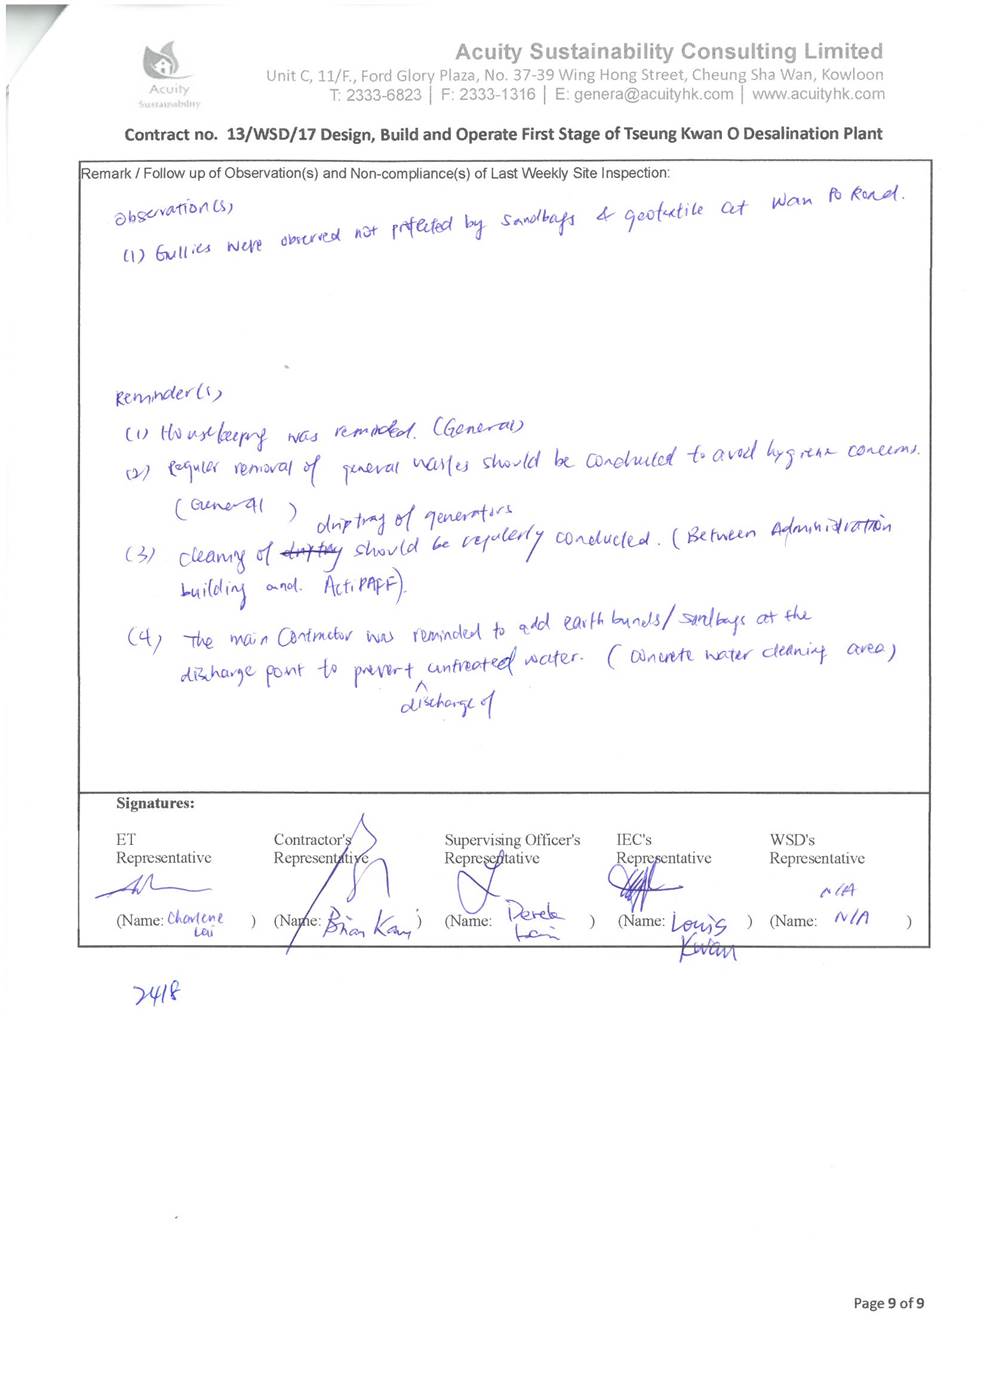 Acuity Sustainability Consulting Limited
Unit C, 11/F., Ford Glory Plaza, No. 37-39 Wing Hong Street, Cheung Sha Wan, Kowloon
T: 2333-6823 | F: 2333-1316 | E: genera@acuityhk.com | www.acuityhk.com
Acuity
Sustainability
Contract no. 13/WSD/17 Design, Build and Operate First Stage of Tseung Kwan O Desalination Plant
Remark / Follow up of Observation(s) and Non-compliance(s) of Last Weekly Site Inspection:
Observation(s)
(1) Gullies were observed not protected by sandbags & geotextile at Wan Po Road.
Reminder(s)
(1) Housekeeping was reminded. (General)
(2) Regular removal of general wastes should be conducted to avoid hygiene concerns.
(General)
drip tray of generators
(3) cleaning of should be regularly conducted. (Between Administration
building and ActiPAFF).
(4) The main Contractor was reminded to add earth bunds/sandbags at the
discharge point to prevent untreated water. (Concrete water cleaning area)
discharge of
Signatures:
ET Contractor's Supervising Officer's IEC's WSD's
Representative Representative Representative Representative Representative
N/A
(Name: Charlene Lai) (Name: Brian Kam) (Name: Derek) (Name: Louis Kwan) (Name: N/A)
24/8
Page 9 of 9